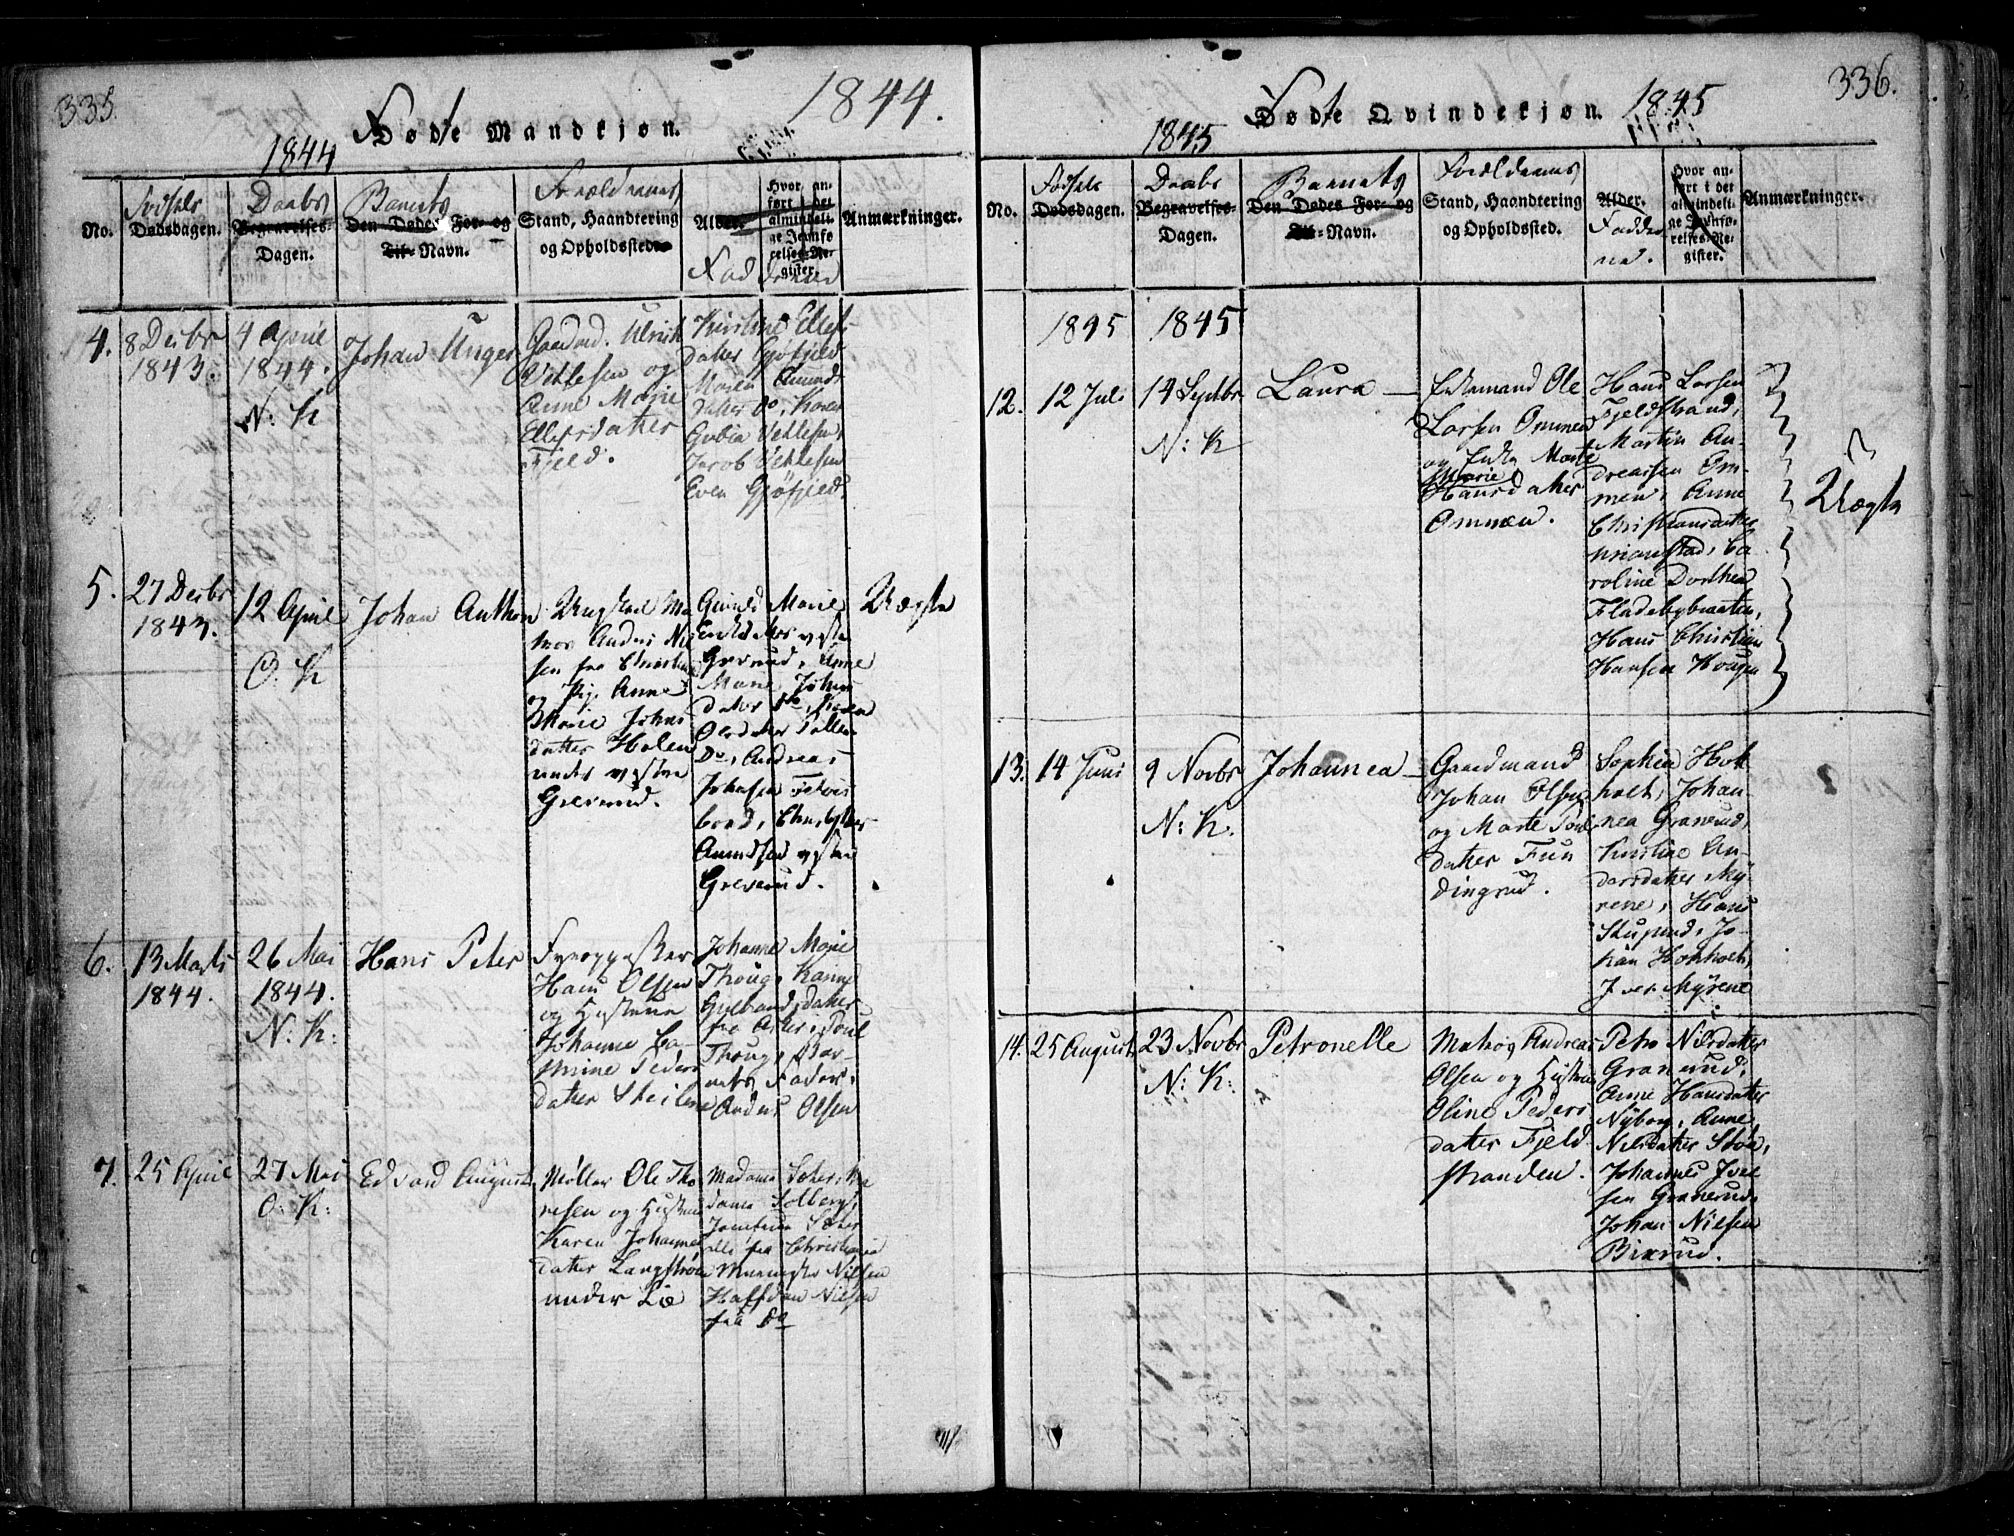 335.
1844.
Fødte Mandkjøn.
1844
No.
Fødsels
Dødsdagen.
Daabs
Begravelses-
Dagen.
Barnets
Den Dødes For- og
Til-Navn.
Forældrenes
Stand, Haandtering
og Opholdssted.
Alder.
Hvor an-
ført i det
almindeli-
ge Jevnfø-
relses-Re-
gister.
Fadderne
Anmærkninger.
4.
8 Decbr
1843.
4 April
1844.
N: K
Johan Unger
Gaardmd. Ulrich
Vettesen og
Anne Marie
Ellefsdatter
Fjeld.
Kirstine Ellefs-
datter Gjøfjeld
Maren Amunds
datter do, Karen
Gubia Vettesen,
Jacob Vettesen
Even Gjøfjeld.
5.
27 Decbr
1843.
12 April
O. K
Johan Anthon
Ungkarl Ma
tros Anders Niel
sen fra Christiania
og Pig. Anne
Marie Johns
datter Holen
under vestre
Greverud.
Gunild Marie
vestre
Greverud, Anne
Marie Johns
datter do, Karen
Olsdatter
Do, Andreas
Johnsen
Christopher
Amundsen vestre
Greverud.
Uægte
6.
13 Marts
1844.
26 Mai
1844.
N. K:
Hans Peter
Hans Olsen
og Hustrue
Johanne Ca-
thrine Peders
datter
Johanne Marie
Thoug, Karen
Gulbrandsdatter
fra Asker, Poul
Thoug, Bar-
nets Fader,
Anders Olsen
7.
25 April
27 Mai
O. K:
Edvard August
Møller Ole Tho
resen og Hustrue
Karen Johannes
datter Langstrøm
under Lø
Madame Ma
dame Solberg,
alle fra Christiania
Nilsen
Halfdan Nilsen
fra do
336.
1845
Fødte Qvindekjøn.
1845
No.
Fødsels
Dødsdagen.
Daabs
Begravelses-
Dagen.
Barnets
Den Dødes For- og
Til-Navn.
Forældrenes
Stand, Haandtering
og Opholdssted.
Alder.
Fadder
ne.
Hvor an-
ført i det
almindeli-
ge Jevnfø-
relses-Re-
gister.
Anmærkninger.
1845
1845
12.
12 Juli
14 Septbr
N: K
Laura
Enkemand Ole
Larsen Ommen
og Enke Marte
Marie
Hansdatter
Ommen.
Hans Larsen
Fjeldstrand,
Martin An-
dreasen Om-
men, Anne
Christiansdatter
Ca
roline Dorthea
Fladebybraaten,
Hans Christian
Hansen Hougen
Uægte
13.
14 Juni
9 Novbr
N: K.
Johannea
Gaardmand
Johan Olsen
og Marte Poul
datter Fun
dingrud.
Sophia Hok
holt, Johan-
nea Granerud,
Kirstine An-
dersdatter My-
rene, Hans
Sturerud, Jo-
han Hokholt,
Iver Myrene
14.
25 August
23 Novbr
N: K:
Petronelle
Matros Andreas
Olsen og Hustrue
Oline Peders
datter Fjeld
stranden.
Petra Nilsdatter
Granerud,
Anne Hansdatter
Nyborg, Anne
Nilsdatter
Johannes Iver
sen Granerud,
Johan Nilsen
Bixrud.